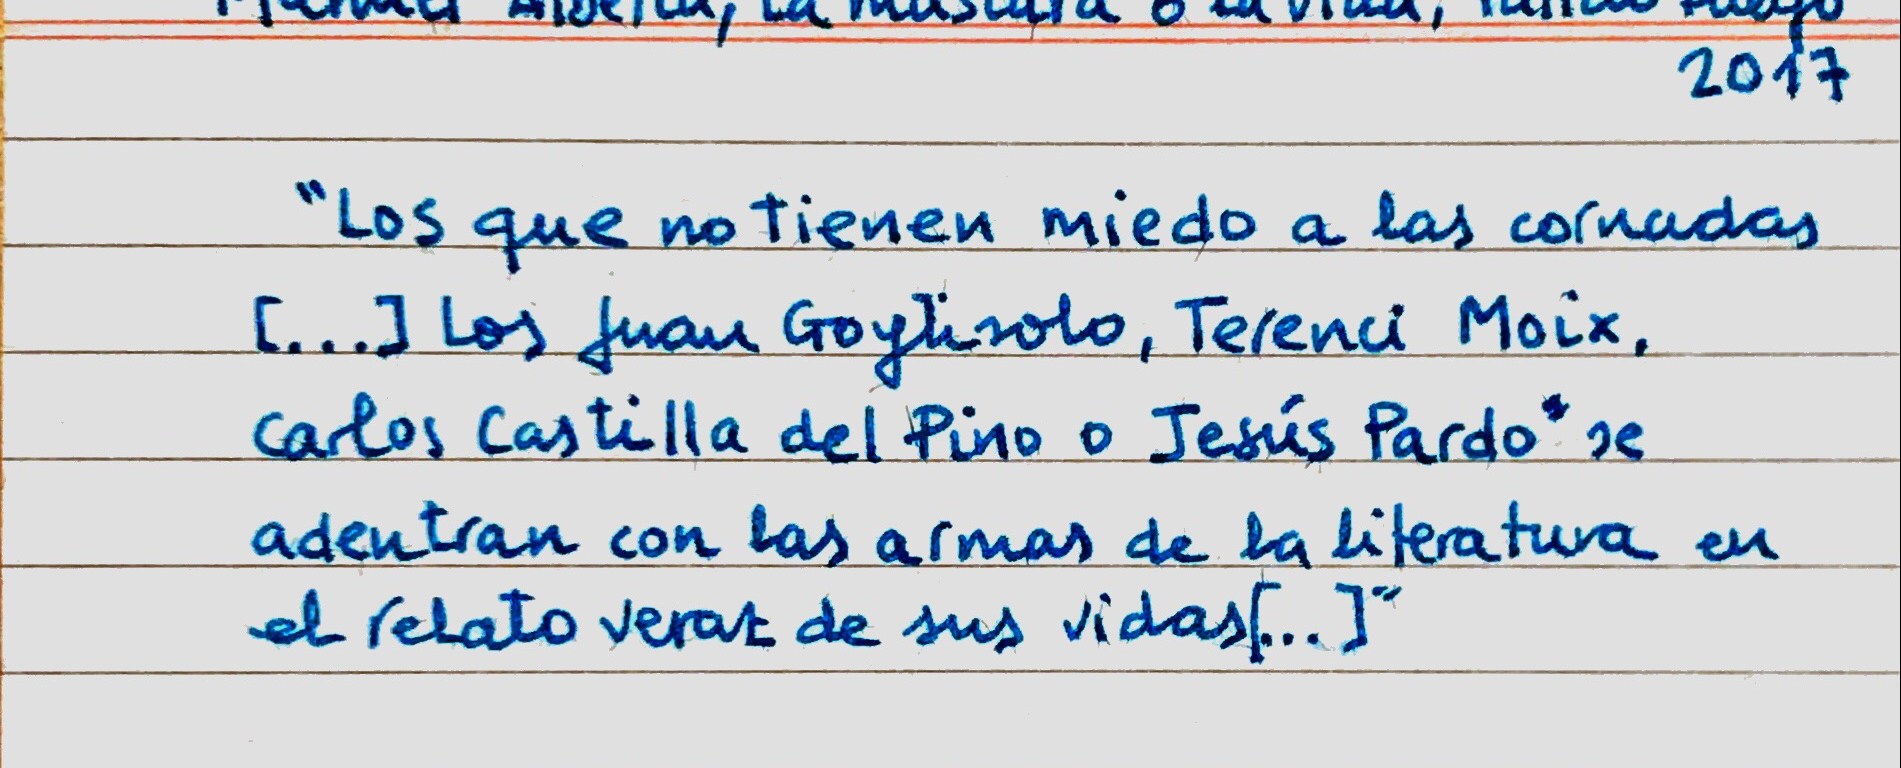 Manuel Alberca, La máscara o la vida, Pálido Fuego
2017
"Los que no tienen miedo a las cornadas
[...] Los Juan Goytisolo, Terenci Moix,
Carlos Castilla del Pino o Jesús Pardo* se
adentran con las armas de la literatura en
el relato veraz de sus vidas[...]"